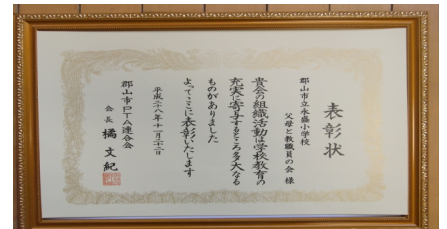 表彰状
郡山市立永盛小学校
父母と教職員の会 様
貴会の組織活動は学校教育の
充実に寄与するところ多大なる
ものがありました
よってここに表彰いたします
平成二八年十一月二十二日
郡山市PTA連合会
会長 橘 文紀